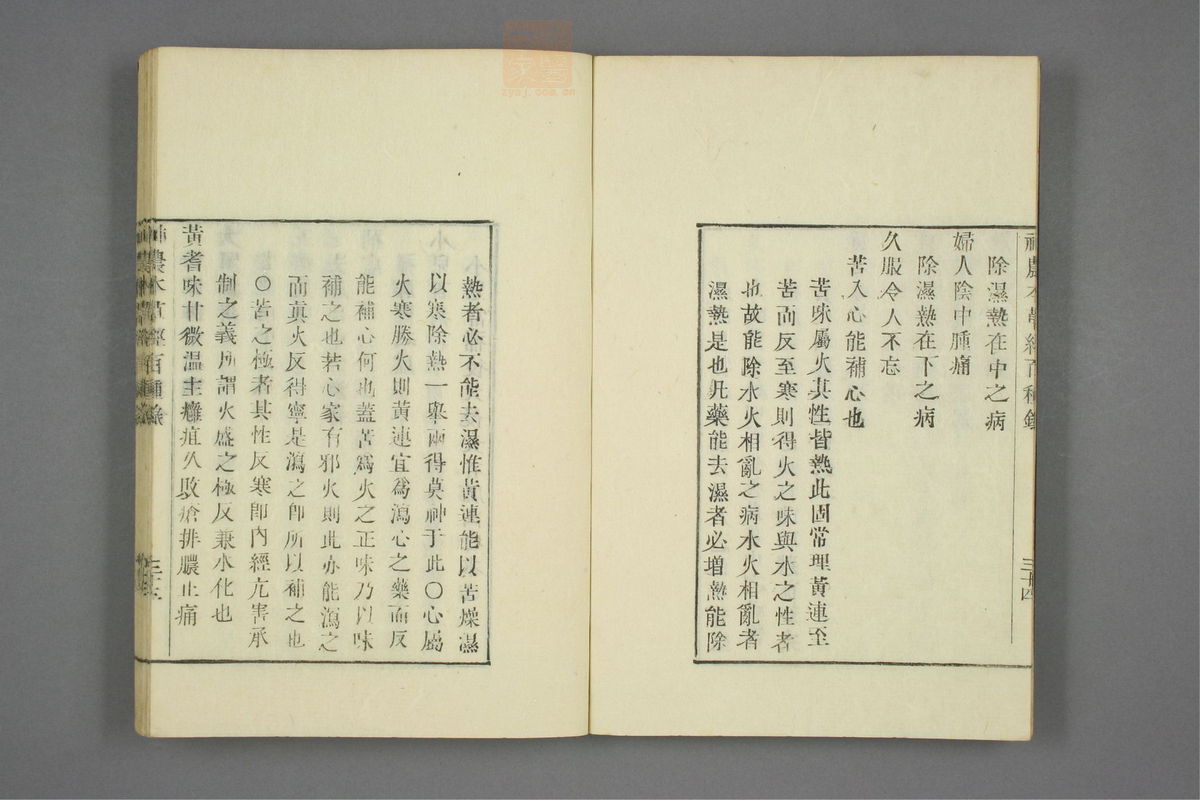 神農本草經百種錄
三十四
除濕熱在中之病
婦人陰中腫痛
除濕熱在下之病
久服令人不忘
苦入心能補心也
苦味屬火其性皆熱此固常理黃連至
苦而反至寒則得火之味與水之性者
也故能除水火相亂之病水火相亂者
濕熱是也凡藥能去濕者必增熱能除
熱者必不能去濕惟黃連能以苦燥濕
以寒除熱一舉兩得莫神于此○心屬
火寒勝火則黃連宜爲瀉心之藥而反
能補心何也蓋苦爲火之正味乃以味
補之也若心家有邪火則此亦能瀉之
而真火反得寧是瀉之卽所以補之也
○苦之極者其性反寒卽內經亢害承
制之義所謂火盛之極反兼水化也
黃耆味甘微溫主癰疽久敗瘡排膿止痛
神農本草經百種錄
三十五
zysj.com.cn